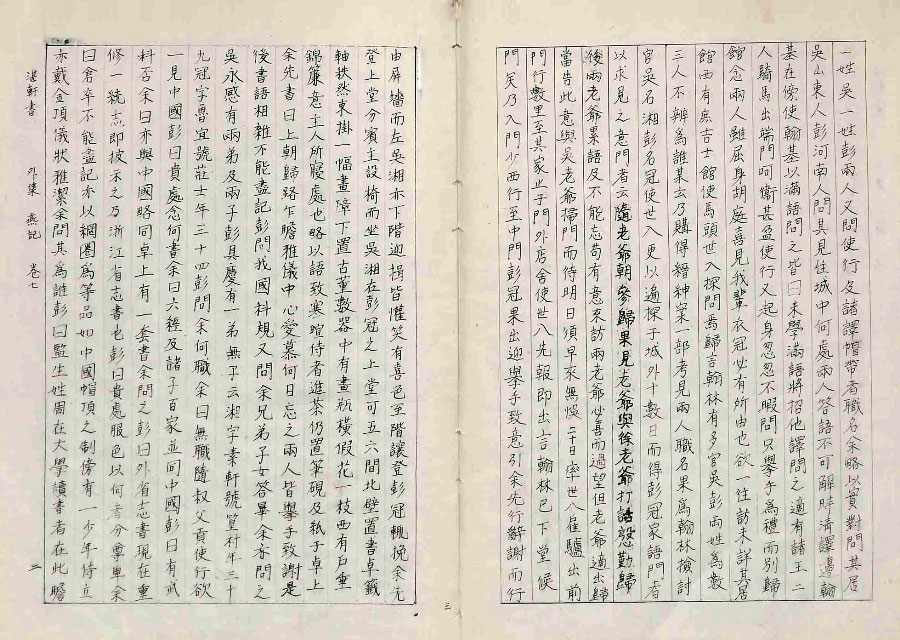 一姓吳一姓彭兩人又問使行各諸譯帽帶者職名余略以實對問其居
吳山東人彭河南人問其見住城中何處兩人答語不可解時淸譯邊翰
基在傍使翰基以滿語問之皆曰未學滿語將招他譯問之適有諸王二
人騎馬出端門呵衞甚盛使行又起身忽忽不暇問只擧手爲禮而別歸
館念兩人雖屈身胡庭喜見我輩衣冠必有所由也欲一往訪未詳其居
館西有庶吉士館使馬頭世八探問焉歸言翰林有多官吳彭兩姓爲數
三人不辨爲誰某云乃購得縉紳案一部考見兩人職名果爲翰林檢討
官吳名湘彭名冠使世八更以遍探于城外十數日而得彭冠家語門者
以求見之意門者云隨老爺朝參歸果見老爺與徐老爺打話慇勤歸
後兩老爺累語及不能忘苟有意來訪兩老爺必喜而過望但老爺適出歸
當告此意與吳老爺掃門而待明日須早來無悞二十日率世八雇驢出前
門行數里至其家止于門外店舍使世八先報卽出言翰林已下堂候
門矣乃入門少西行至中門彭冠果出迎擧手致意引余先行辭謝而行
由屛墻而左吳湘亦下階迎揖皆懽笑有喜色至階讓登彭冠輒挽余先
登上堂分賓主設椅而坐吳湘在彭冠之上堂可五六間北壁置書卓籤
軸秩然東掛一幅畫障下置古董數器中有畫甁橫假花一枝西有戶垂
錦簾意主人所寢處也略以語致寒暄侍者進茶仍置筆硯及紙于卓上
余先書曰上朝歸路乍瞻雅儀中心愛慕何日忘之兩人皆擧手致謝是
後書語相雜不能盡記彭問我國科規又問余兄弟子女答畢余亦問之
吳永感有兩弟及兩子彭具慶有一弟無子云湘字素軒號篁村年三十
九冠字魯宜號莊士年三十四彭問余何職余曰無職隨叔父貢使行欲
一見中國彭曰貴處念何書余曰六經及諸子百家並同中國彭曰有貳
科否余曰亦與中國略同卓上有一套書余問之彭曰外省志書現在重
修一統志卽披釆之乃浙江省志書也彭曰貴處服色以何者分尊卑余
曰倉卒不能盡記亦以網圈爲等品如中國帽頂之制傍有一少年侍立
亦戴金頂儀狀雅潔余問其爲誰彭曰監生姓周在大學讀書者在此瞻
湛軒書 外集 燕記 卷七 三
三